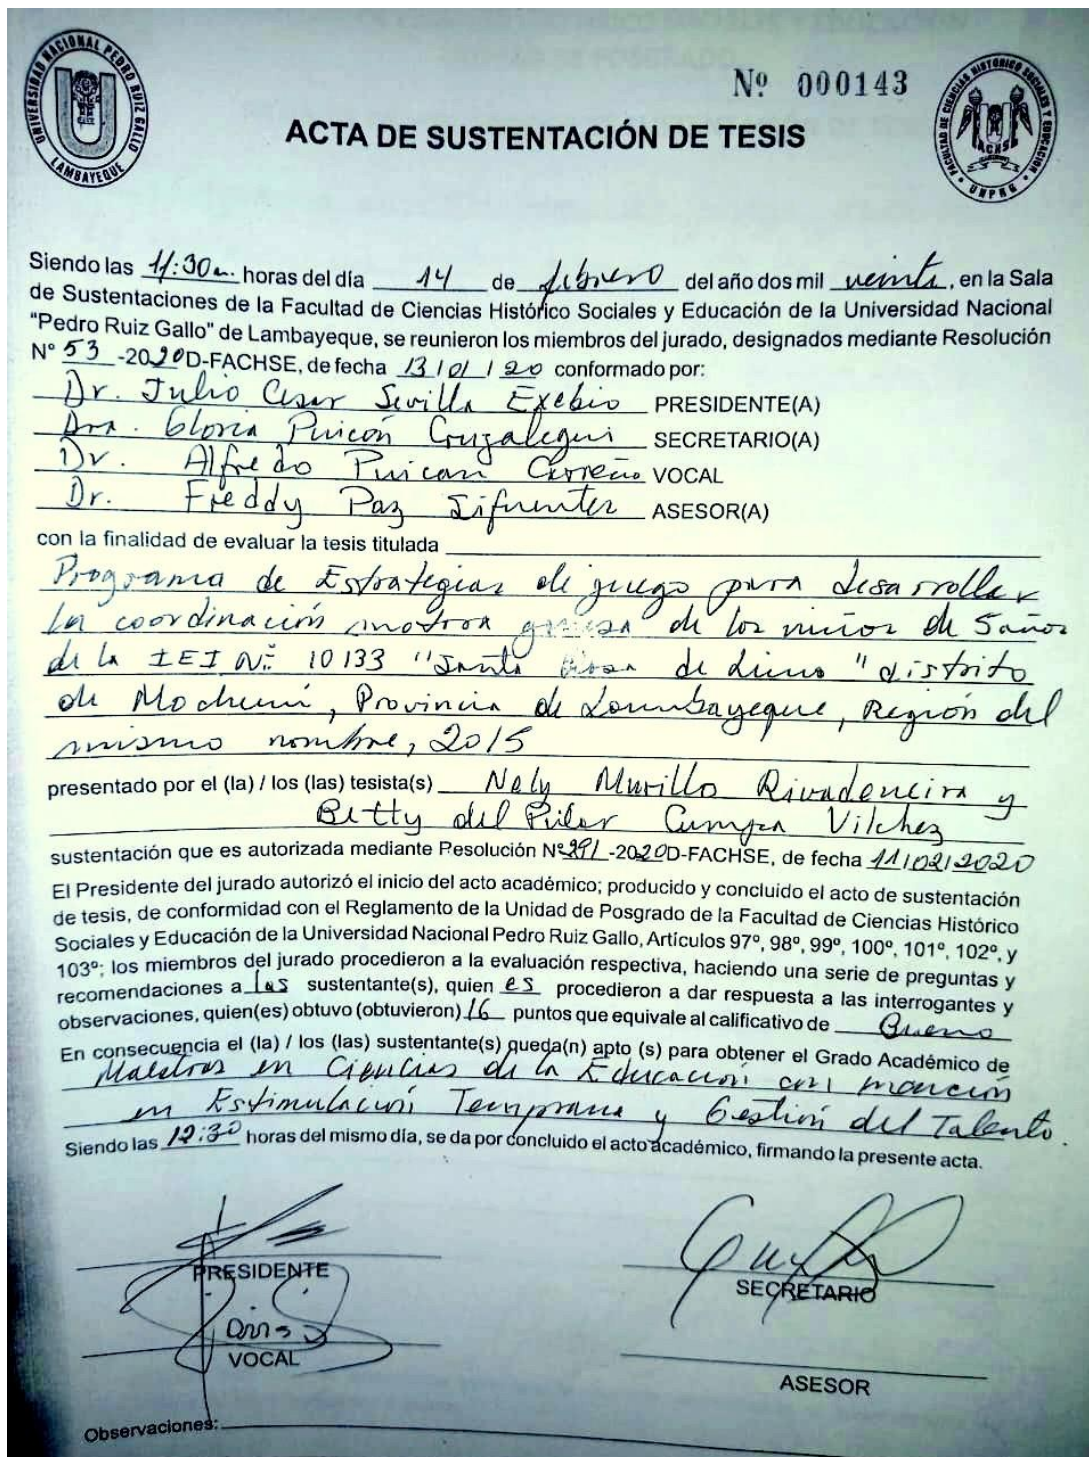 UNIVERSIDAD NACIONAL PEDRO RUIZ GALLO
LAMBAYEQUE
Nº 000143
FACULTAD DE CIENCIAS HISTORICO SOCIALES Y EDUCACION
ACHSE
UNPRG
ACTA DE SUSTENTACIÓN DE TESIS
Siendo las 11:30 horas del día 14 de febrero del año dos mil veinte, en la Sala
de Sustentaciones de la Facultad de Ciencias Histórico Sociales y Educación de la Universidad Nacional
"Pedro Ruiz Gallo" de Lambayeque, se reunieron los miembros del jurado, designados mediante Resolución
N° 53 -2020D-FACHSE, de fecha 13/01/20 conformado por:
Dr. Julio Cesar Sevilla Exebio PRESIDENTE(A)
Dra. Gloria Puicón Cruzalegui SECRETARIO(A)
Dr. Alfredo Puican Carreño VOCAL
Dr. Freddy Paz SECRETARIO ASESOR(A)
con la finalidad de evaluar la tesis titulada
Programa de Estrategias de juego para desarrollar
la coordinación motora gruesa de los niños de 5 años
de la IEI N° 10133 "Santa Rosa de Lima" distrito
de Mochumí, Provincia de Lambayeque, Región del
mismo nombre, 2015
presentado por el (la) / los (las) tesista(s) Nely Murillo Rivadeneira y
Betty del Pilar Cumpa Vilchez
sustentación que es autorizada mediante Resolución N° 291-2020D-FACHSE, de fecha 11/02/2020
El Presidente del jurado autorizó el inicio del acto académico; producido y concluido el acto de sustentación
de tesis, de conformidad con el Reglamento de la Unidad de Posgrado de la Facultad de Ciencias Histórico
Sociales y Educación de la Universidad Nacional Pedro Ruiz Gallo, Artículos 97º, 98º, 99º, 100º, 101º, 102º, y
103º; los miembros del jurado procedieron a la evaluación respectiva, haciendo una serie de preguntas y
recomendaciones a las sustentante(s), quien es procedieron a dar respuesta a las interrogantes y
observaciones, quien(es) obtuvo (obtuvieron) 16 puntos que equivale al calificativo de Bueno
En consecuencia el (la) / los (las) sustentante(s) queda(n) apto (s) para obtener el Grado Académico de
Maestras en Ciencias de la Educación con mención
en Estimulación Temprana y Gestión del Talento.
Siendo las 12:30 horas del mismo día, se da por concluido el acto académico, firmando la presente acta.
PRESIDENTE
SECRETARIO
VOCAL
ASESOR
Observaciones: